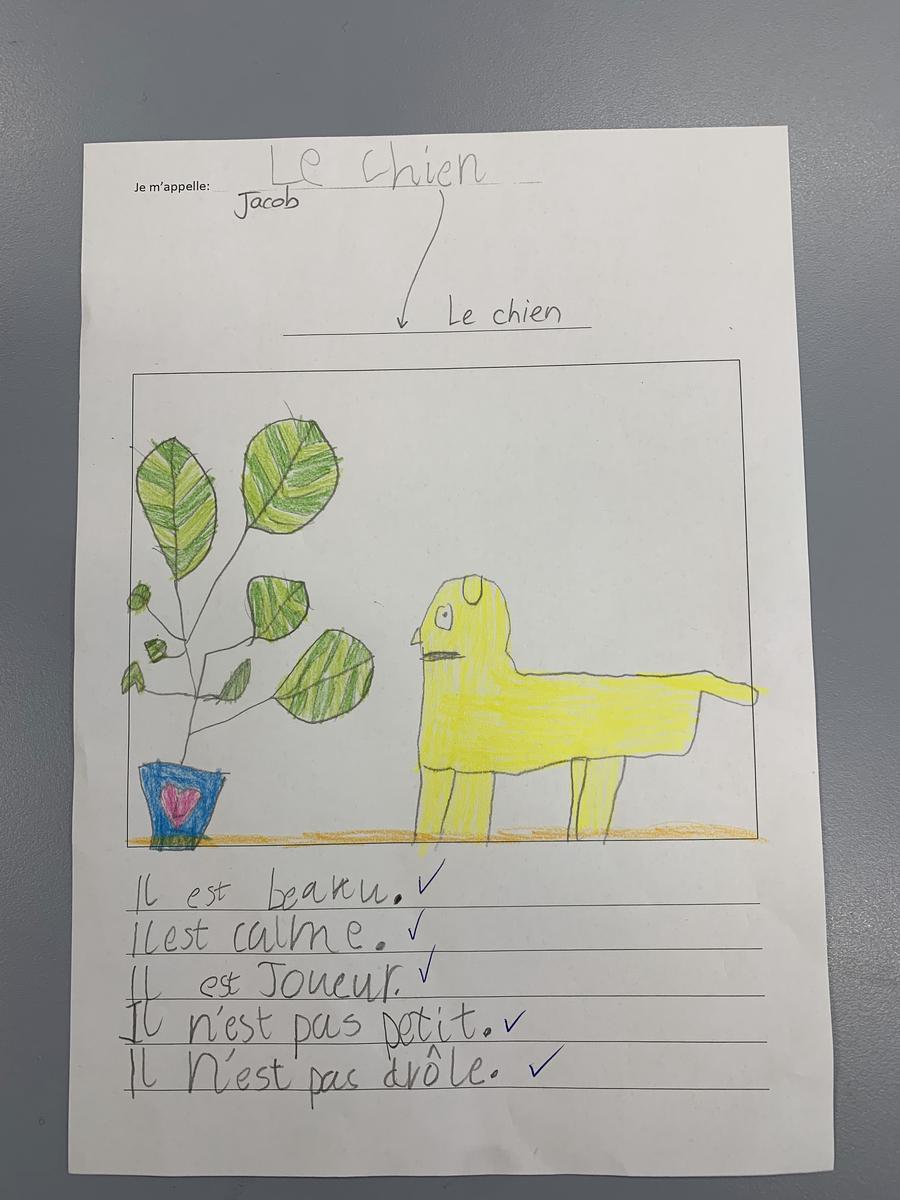 Je m'appelle: Le chien
Jacob
Le chien
Il est beau.
Il est calme.
Il est Joueur.
Il n'est pas petit.
Il n'est pas drôle.